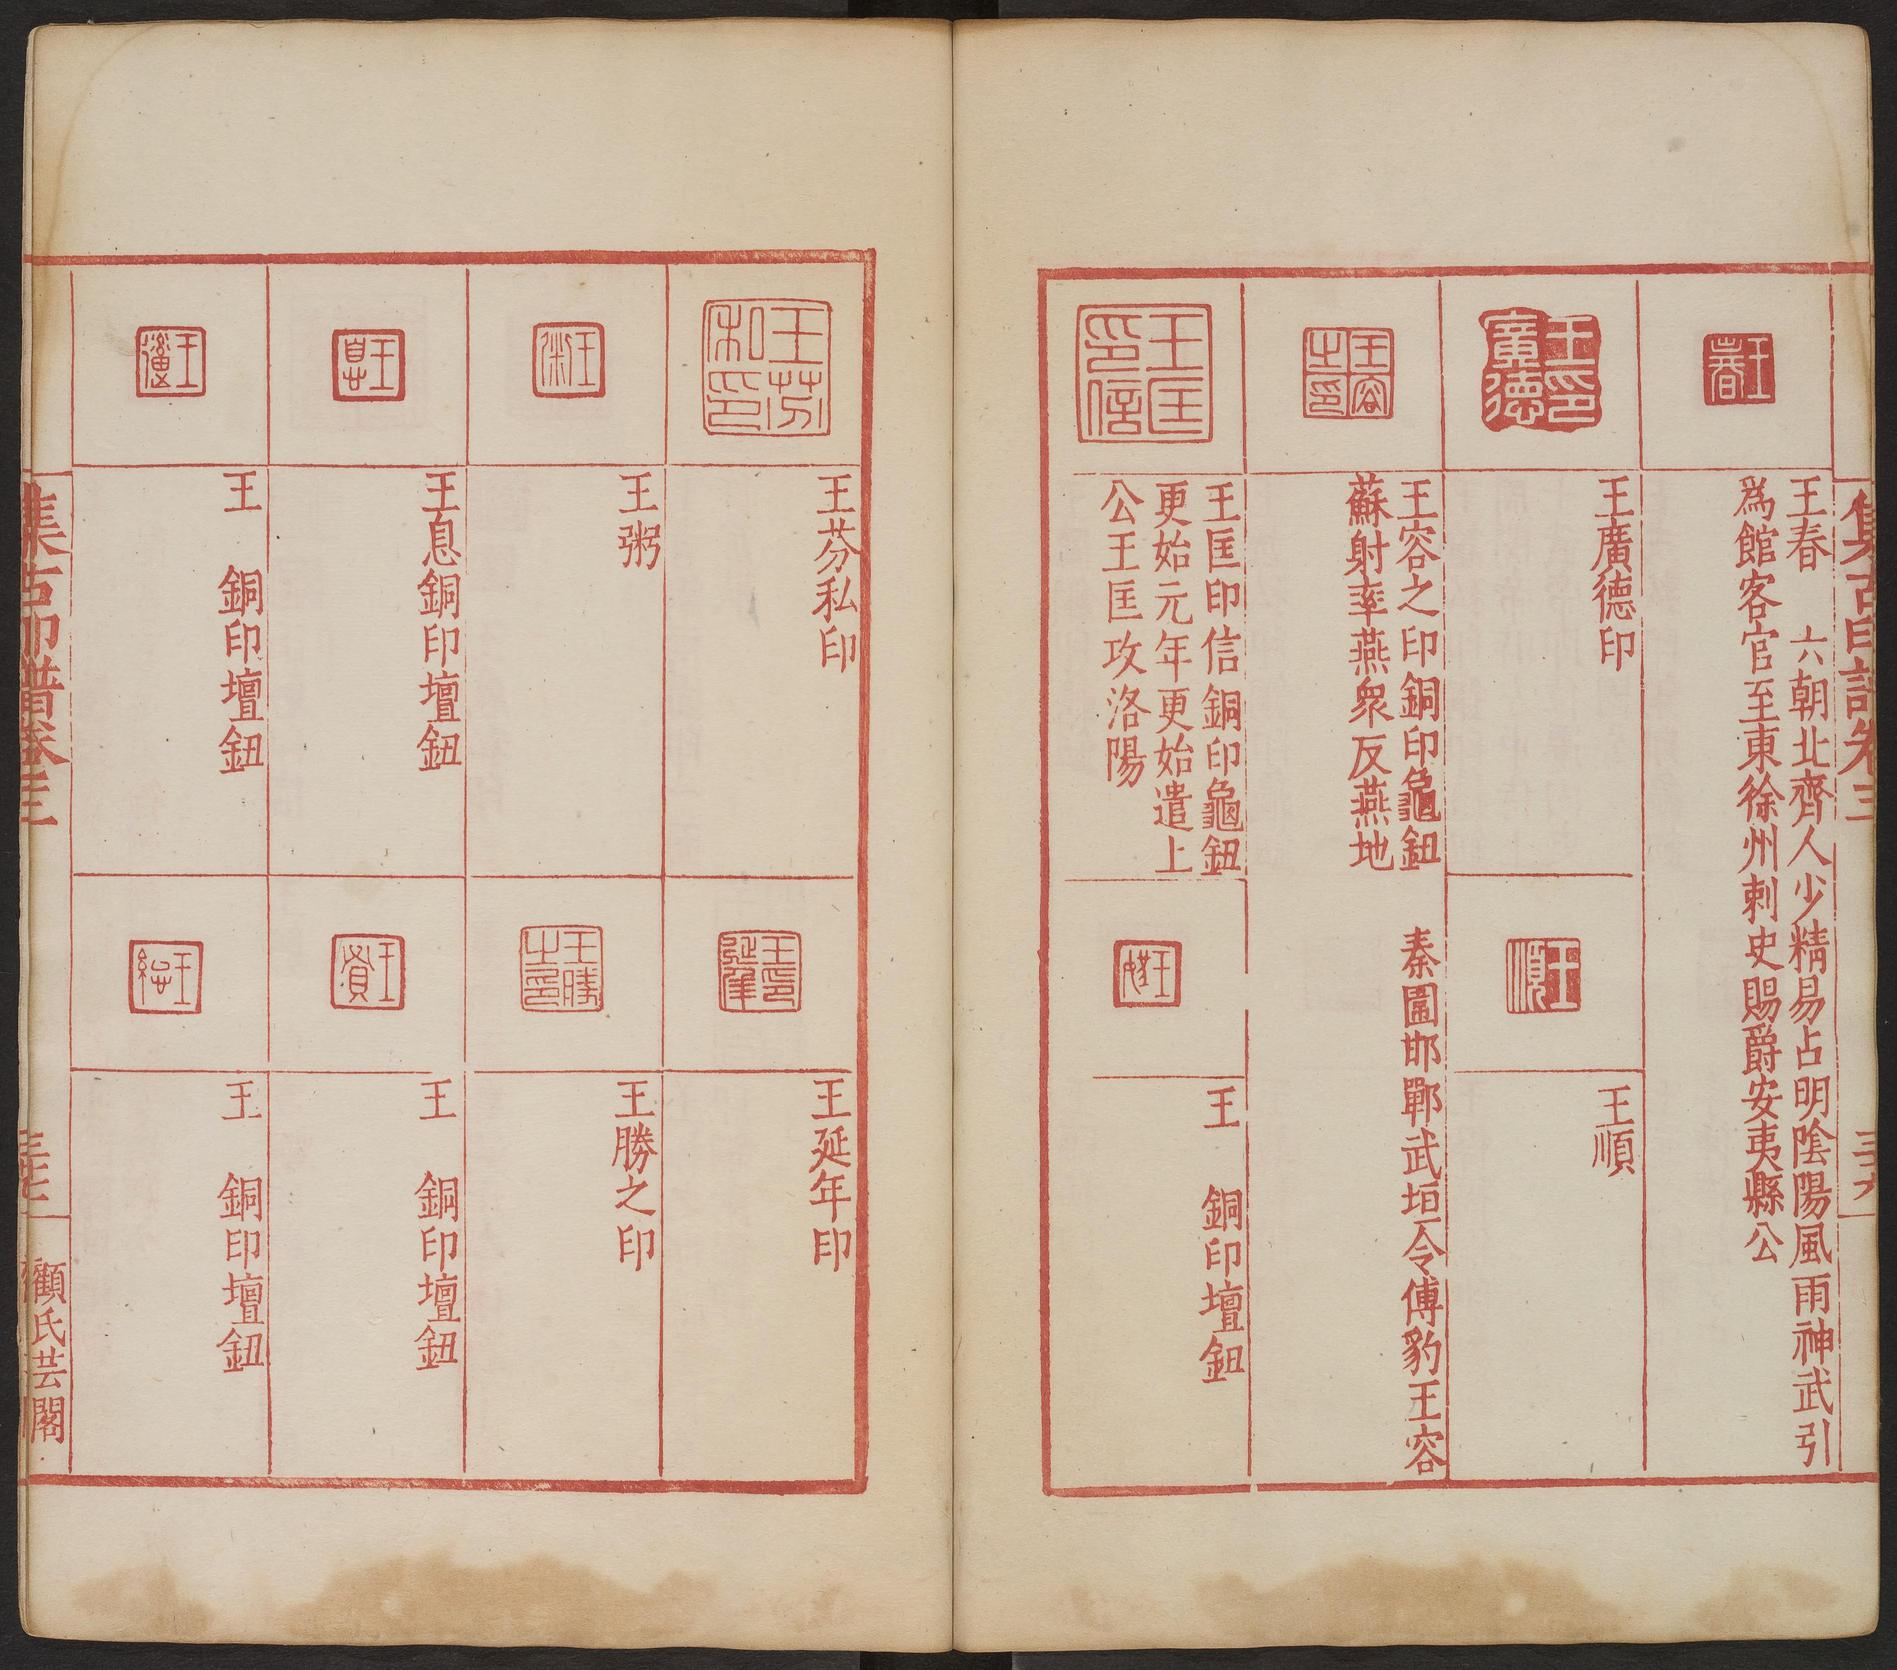 集古印譜卷三
三六
王春
王春　六朝北齊人少精易占明陰陽風雨神武引
爲館客官至東徐州刺史賜爵安夷縣公
王印廣德
王廣德印
王順
王順
王容之印
王容之印銅印龜鈕　秦圍邯鄲武垣令傅豹王容
蘇射率燕衆反燕地
王匡印信
王匡印信銅印龜鈕
更始元年更始遣上
公王匡攻洛陽
王　銅印壇鈕
王芬私印
王芬私印
王印延年
王延年印
王粥
王勝之印
王勝之印
王息銅印壇鈕
王　銅印壇鈕
王　銅印壇鈕
王　銅印壇鈕
集古印譜卷三
三七
顧氏芸閣